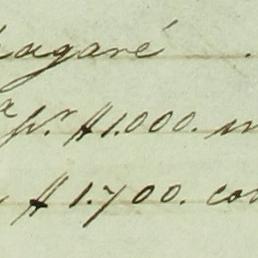 pagaré
pr. $1.000.
$1.700. co